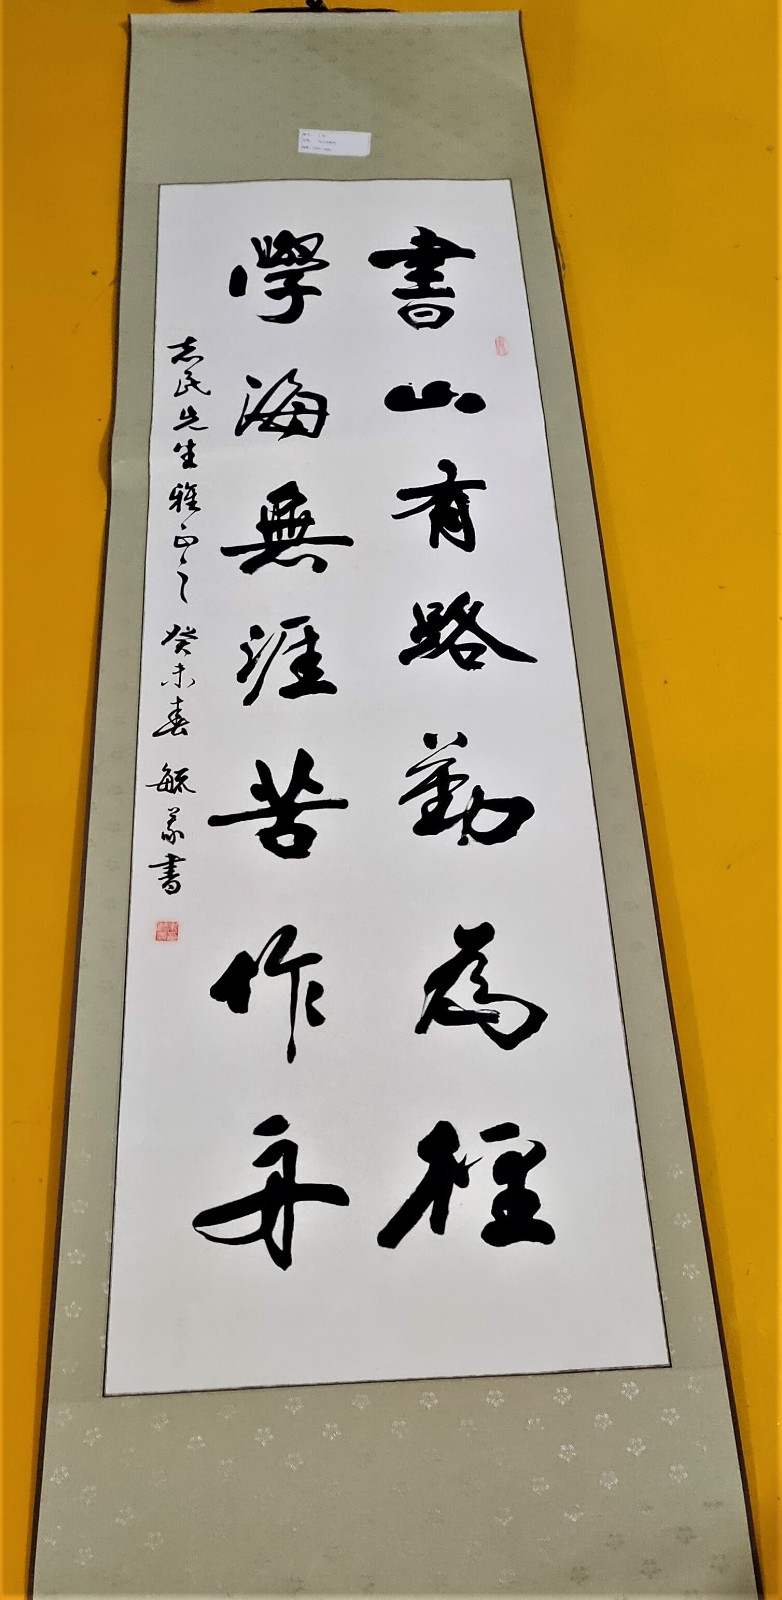 書山有路勤為徑
學海無涯苦作舟
志民先生雅正之 癸未春 毓秀書